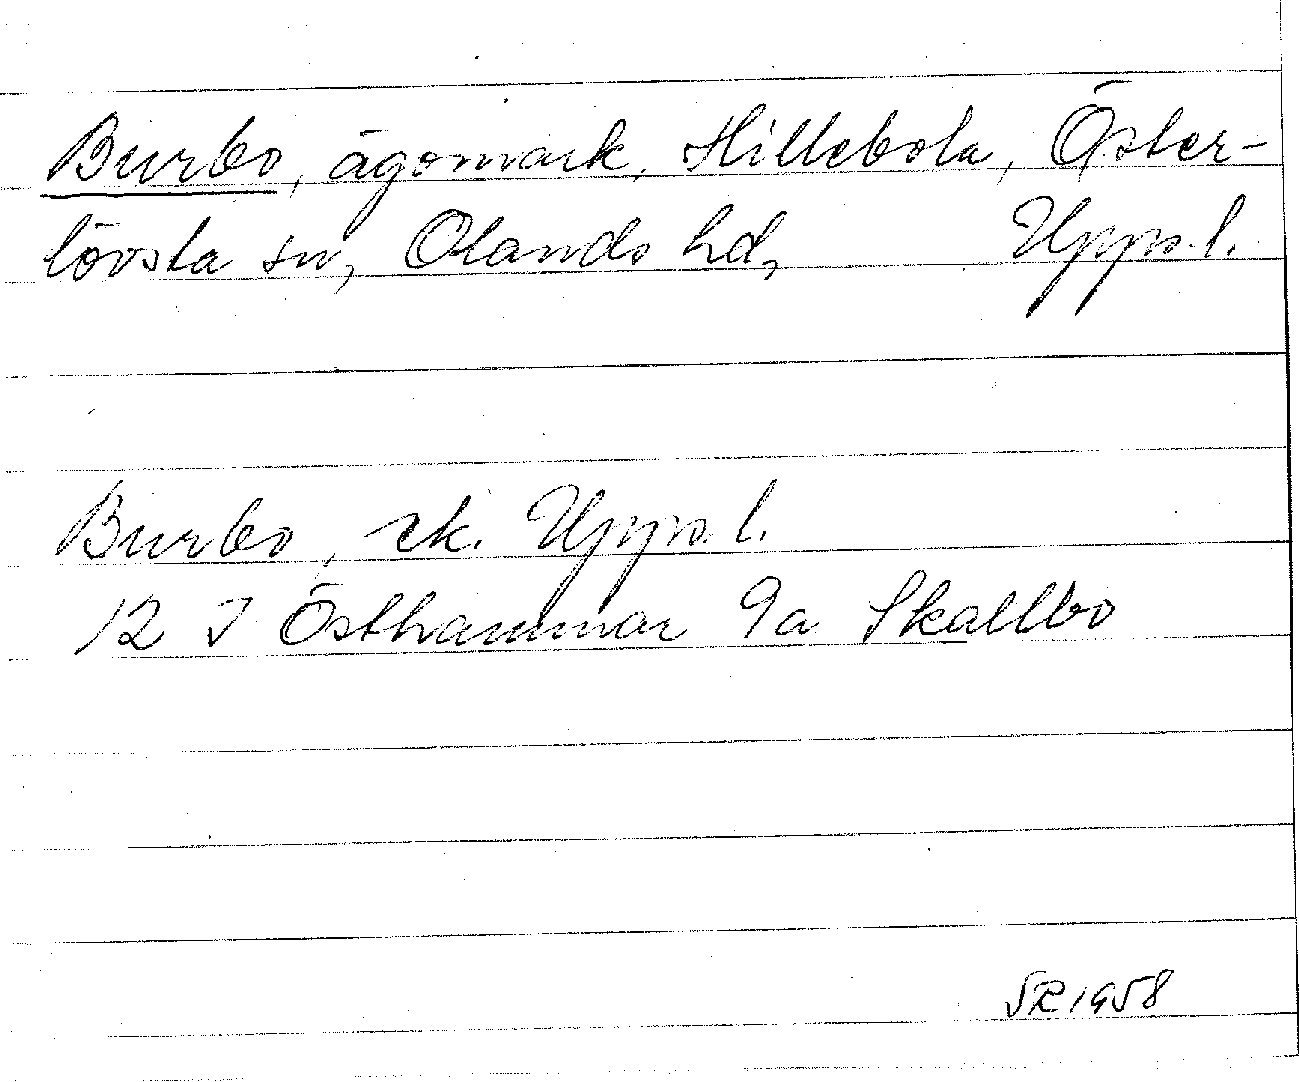 Burbo, ägomark, Hillebola, Öster-
lövsta sn, Olands hd, Upps. l.
Burbo, ek. Upps. l.
12 I Östhammar 9a Skallbo
SR 1958